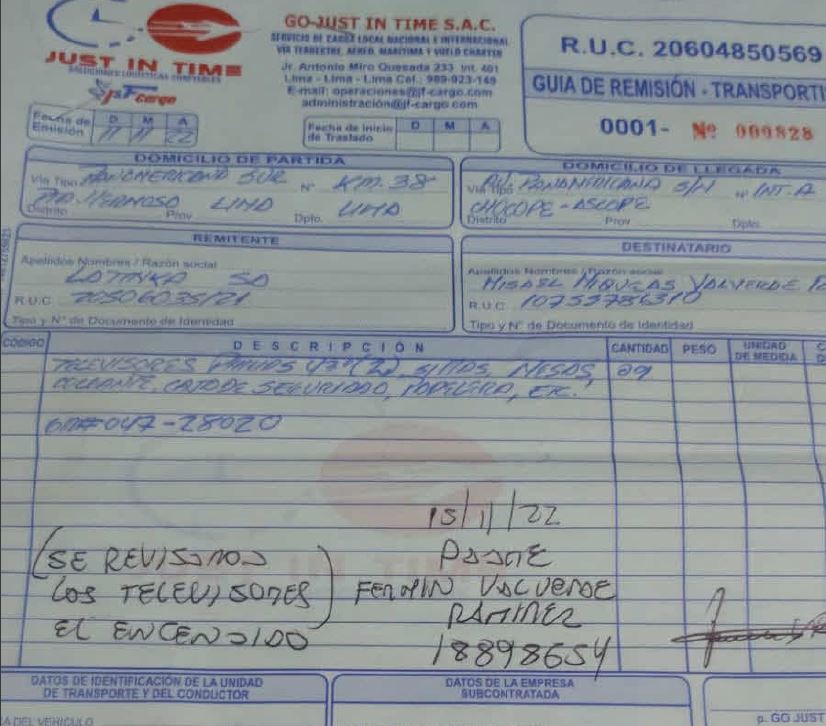 JUST IN TIME
SOLUCIONES LOGISTICAS COMPLETAS
JF Cargo
GO-JUST IN TIME S.A.C.
SERVICIO DE CARGA LOCAL NACIONAL E INTERNACIONAL
VIA TERRESTRE, AEREO, MARITIMA Y VUELO CHARTER
Jr. Antonio Miro Quesada 233 Int. 401
Lima - Lima - Lima Cel.: 989-923-149
E-mail: operaciones@jf-cargo.com
administración@jf-cargo.com
R.U.C. 20604850569
GUIA DE REMISIÓN - TRANSPORTI
0001- Nº 000828
Fecha de Emisión D M A
11 11 22
Fecha de inicio de Traslado D M A
DOMICILIO DE PARTIDA
Vía Tipo PANAMERICANA SUR Nº KM. 38
PTA. HERMOSA LIMA LIMA
Distrito Prov. Dpto.
DOMICILIO DE LLEGADA
Vía Tipo AV. PANAMERICANA S/N Nº INT. A
CHOCOPE - ASCOPE
Distrito Prov Dpto.
REMITENTE
Apellidos Nombres / Razón social
SA
R.U.C. 20506035121
Tipo y Nº de Documento de Identidad
DESTINATARIO
Apellidos Nombres / Razón social
MISAEL MIQUEAS VALVERDE
R.U.C. 10755786310
Tipo y Nº de Documento de Identidad
CÓDIGO DESCRIPCIÓN CANTIDAD PESO UNIDAD DE MEDIDA
TELEVISORES (2), SILLAS, MESAS, 09
CAJA DE SEGURIDAD, PAPELERA, ETC.
047-28020
15/11/22
(SE REVISARON
LOS TELEVISORES)
EL ENCENDIDO
PADRE
FERMIN VALVERDE
RAMIREZ
18898654
DATOS DE IDENTIFICACIÓN DE LA UNIDAD
DE TRANSPORTE Y DEL CONDUCTOR
DATOS DE LA EMPRESA
SUBCONTRATADA
A DEL VEHICULO
p. GO JUST